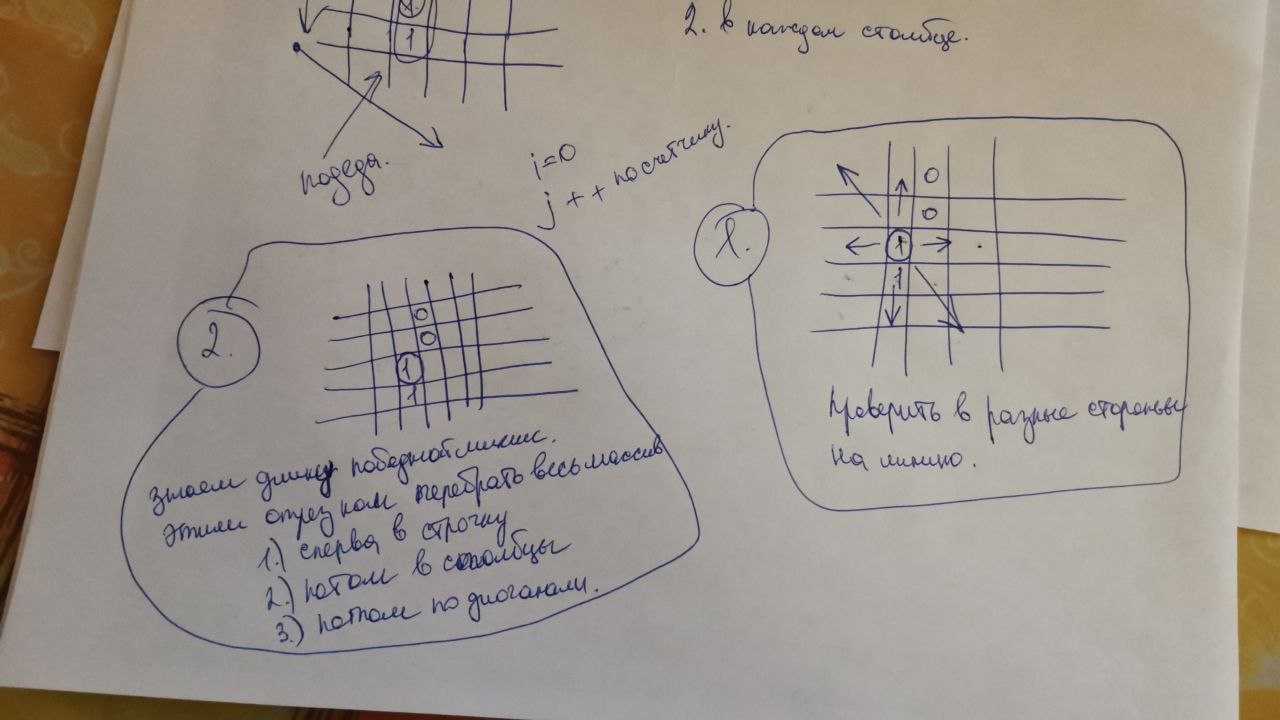 1
2. в каждом столбце.
победа.
i=0
j++ по счетчику.
1.
0
0
1
1
Проверить в разные стороны
на линию.
2.
0
0
1
1
знаем длину победной линии.
этим отрезком перебрать весь массив
1.) сперва в строчку
2.) потом в столбцы
3.) потом по диогонали.